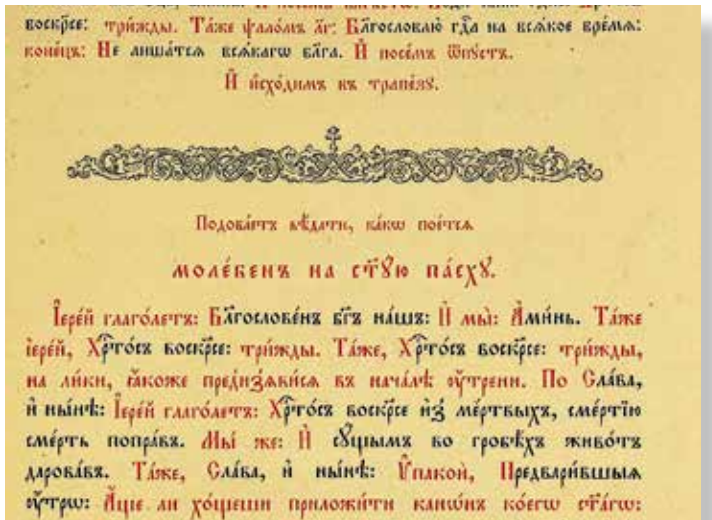 воскр҃се: три́жды. Та́же ѱало́мъ л҃г: Бл҃гословлю̀ гдⷭ҇а на всѧ́кое вре́мѧ:
коне́цъ: Не лиша́тсѧ всѧ́кагѡ бл҃га. И҆ посе́мъ ѿпꙋ́стъ.
И҆ и҆схо́димъ въ трапе́зꙋ.
Подоба́етъ вѣ́дати, ка́кѡ пое́тсѧ
моле́бенъ на ст҃ꙋ́ю па́схꙋ.
І҆ере́й глаго́летъ: Бл҃гослове́нъ бг҃ъ на́шъ: И҆ мы̀: А҆ми́нь. Та́же
і҆ере́й, Хрⷭ҇то́съ воскр҃се: три́жды. Та́же, Хрⷭ҇то́съ воскр҃се: три́жды,
на ли́ки, ꙗ҆́коже пред̾из̾ѧви́сѧ въ нача́лѣ ᲂу҆́трени. По Сла́ва,
и҆ ны́нѣ: І҆ере́й глаго́летъ: Хрⷭ҇то́съ воскр҃се и҆з̾ ме́ртвыхъ, сме́ртїю
сме́рть попра́въ. Мы́ же: И҆ сꙋ́щымъ во гробѣ́хъ живо́тъ
дарова́въ. Та́же, Сла́ва, и҆ ны́нѣ: Ѵ҆пакоѝ, Предвари́вшыѧ
ᲂу҆́трѡ: А҆́ще ли хо́щеши приложи́ти канѡ́нъ ко́егѡ ст҃а́гѡ: